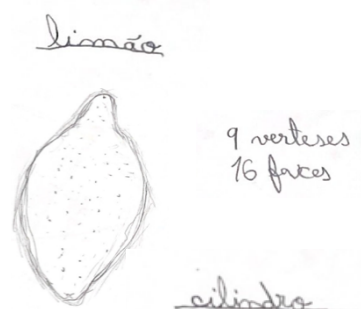 limão
9 verteses
16 faces
cilindro